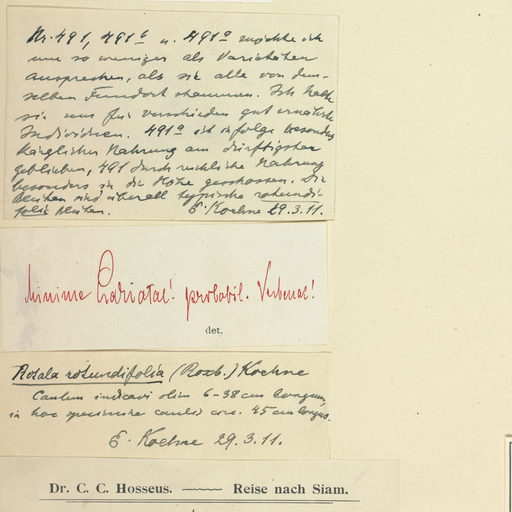 Nr. 491, 491b u. 491a möchte ich
um so weniger als Varietäten
ansprechen, als sie alle von dem-
selben Fundort stammen. Ich halte
sie nur für verschieden gut ernährte
Individuen. 491a ist infolge besonders
kärglicher Nahrung am dürftigsten
geblieben, 491 durch reichliche Nahrung
besonders in die Höhe geschossen. Die
Blüten sind überall typische rotundi-
folia Blüten. E. Koehne 29.3.11.
minime probabil. Verbenac!
det.
Rotala rotundifolia (Roxb.) Koehne
Caulem indicavi olim 6-38 cm longum,
in hoc specimine caulis circ. 45 cm longus.
E. Koehne 29.3.11.
Dr. C. C. Hosseus. —— Reise nach Siam.